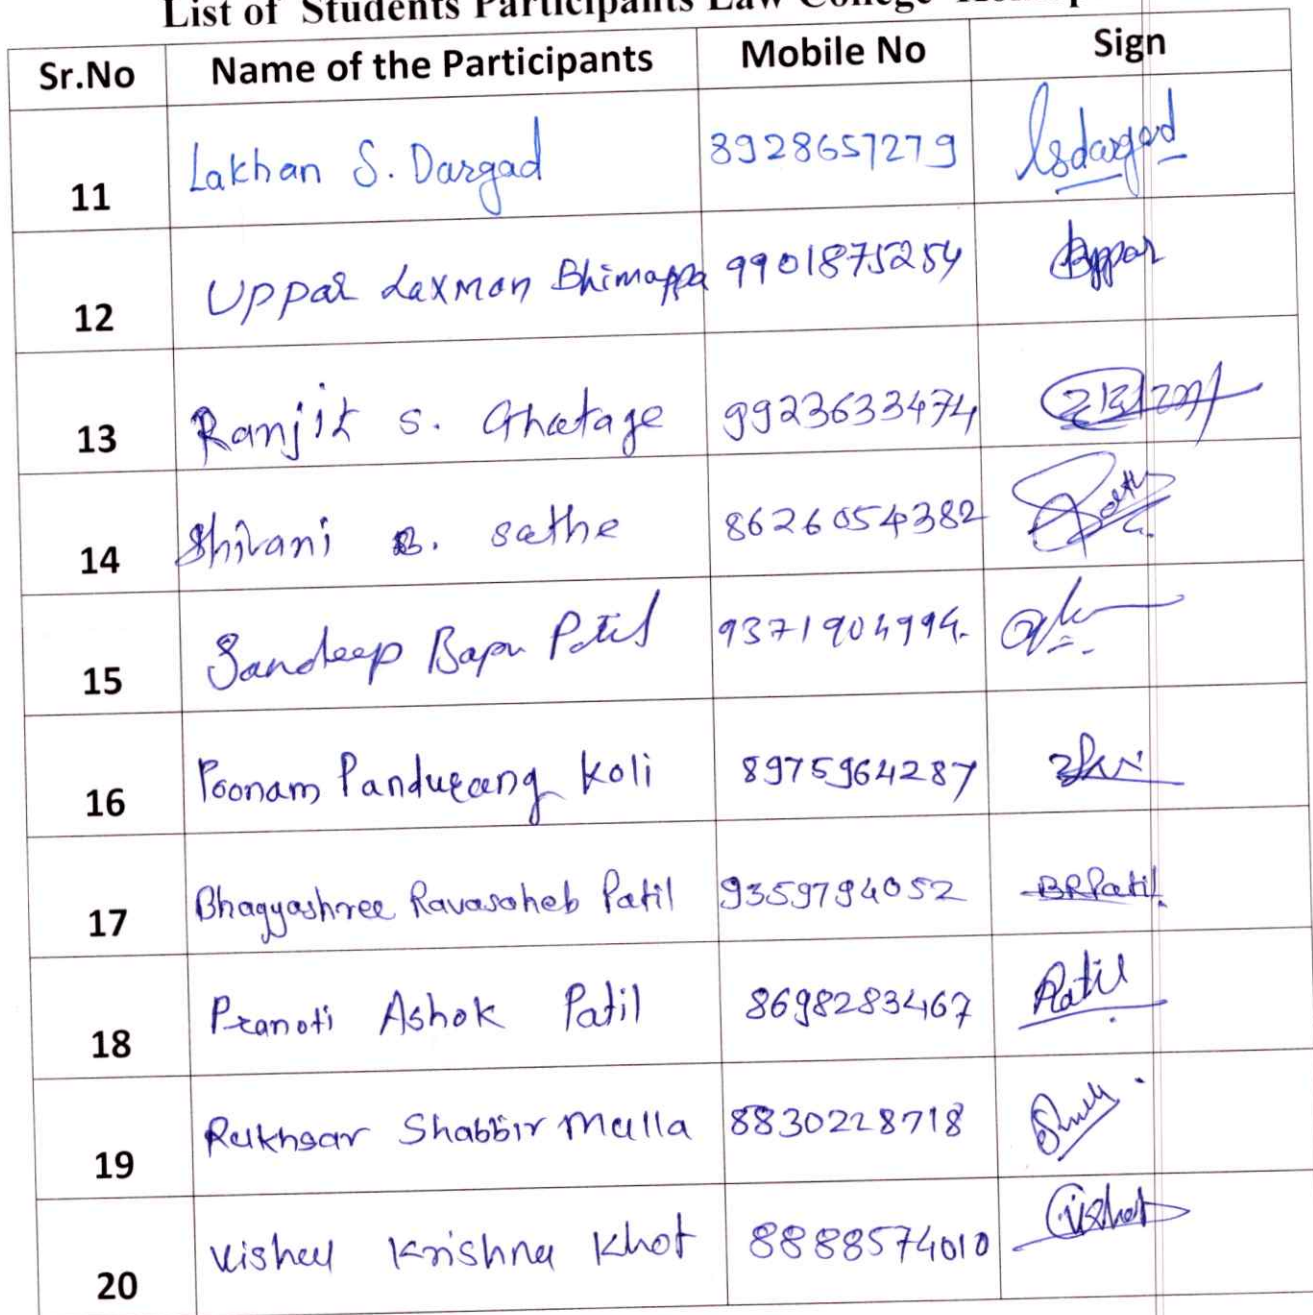 List of Students Participants Law College
Sr.No Name of the Participants Mobile No Sign
11 Lakhan S. Dargad 8928657279 lsdargad
12 Uppar Laxman Bhimappa 9901875254 Uppar
13 Ranjit S. Ghatage 9923633474
14 Shivani B. sathe 8626054382
15 Sandeep Bapu Patil 9371904994.
16 Poonam Pandurang Koli 8975964287
17 Bhagyashree Ravasaheb Patil 9359794052 BRPatil
18 Pranoti Ashok Patil 8698283467 Patil
19 Rukhsar Shabbir Mulla 8830228718
20 Vishal Krishna Khot 8888574010